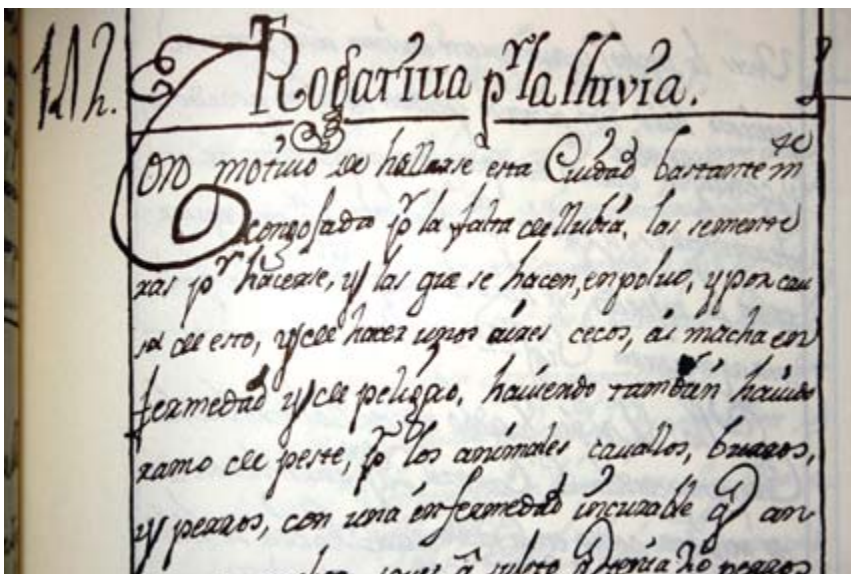 Rogativa pr la lluvia.
Con motivo de hallarse esta Ciudad bastante
acongojada pr la falta de llubia, las semente
ras pr hacerse, y las que se hacen, en polvo, y por cau
sa de esto, y de hacer unos aires cecos, ai mucha en
fermedad y de peligro, haviendo tambien havido
ramo de peste, pr los animales cavallos, burros,
y perros, con una enfermedad incurable q an
perros